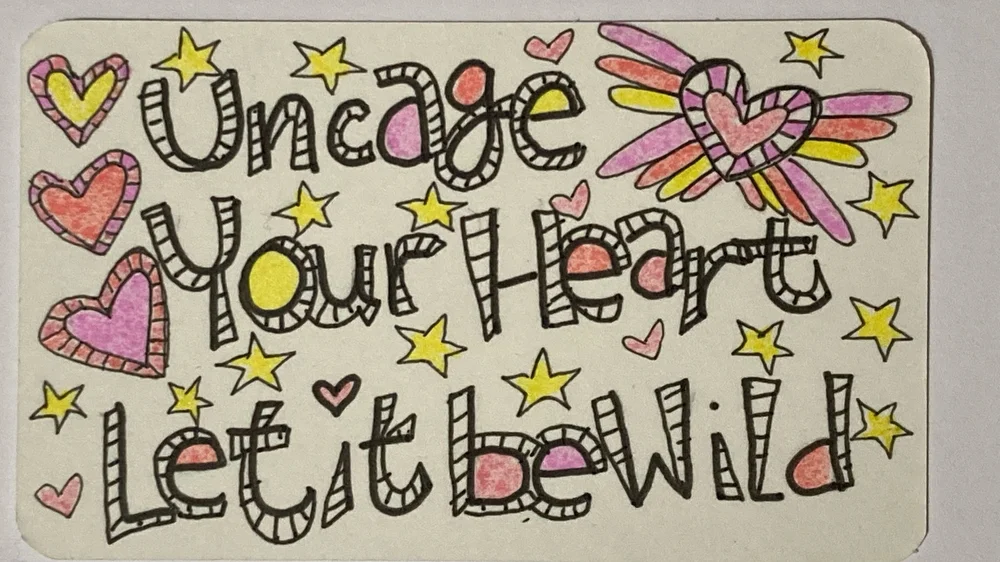 Uncage
Your Heart
Let it be Wild